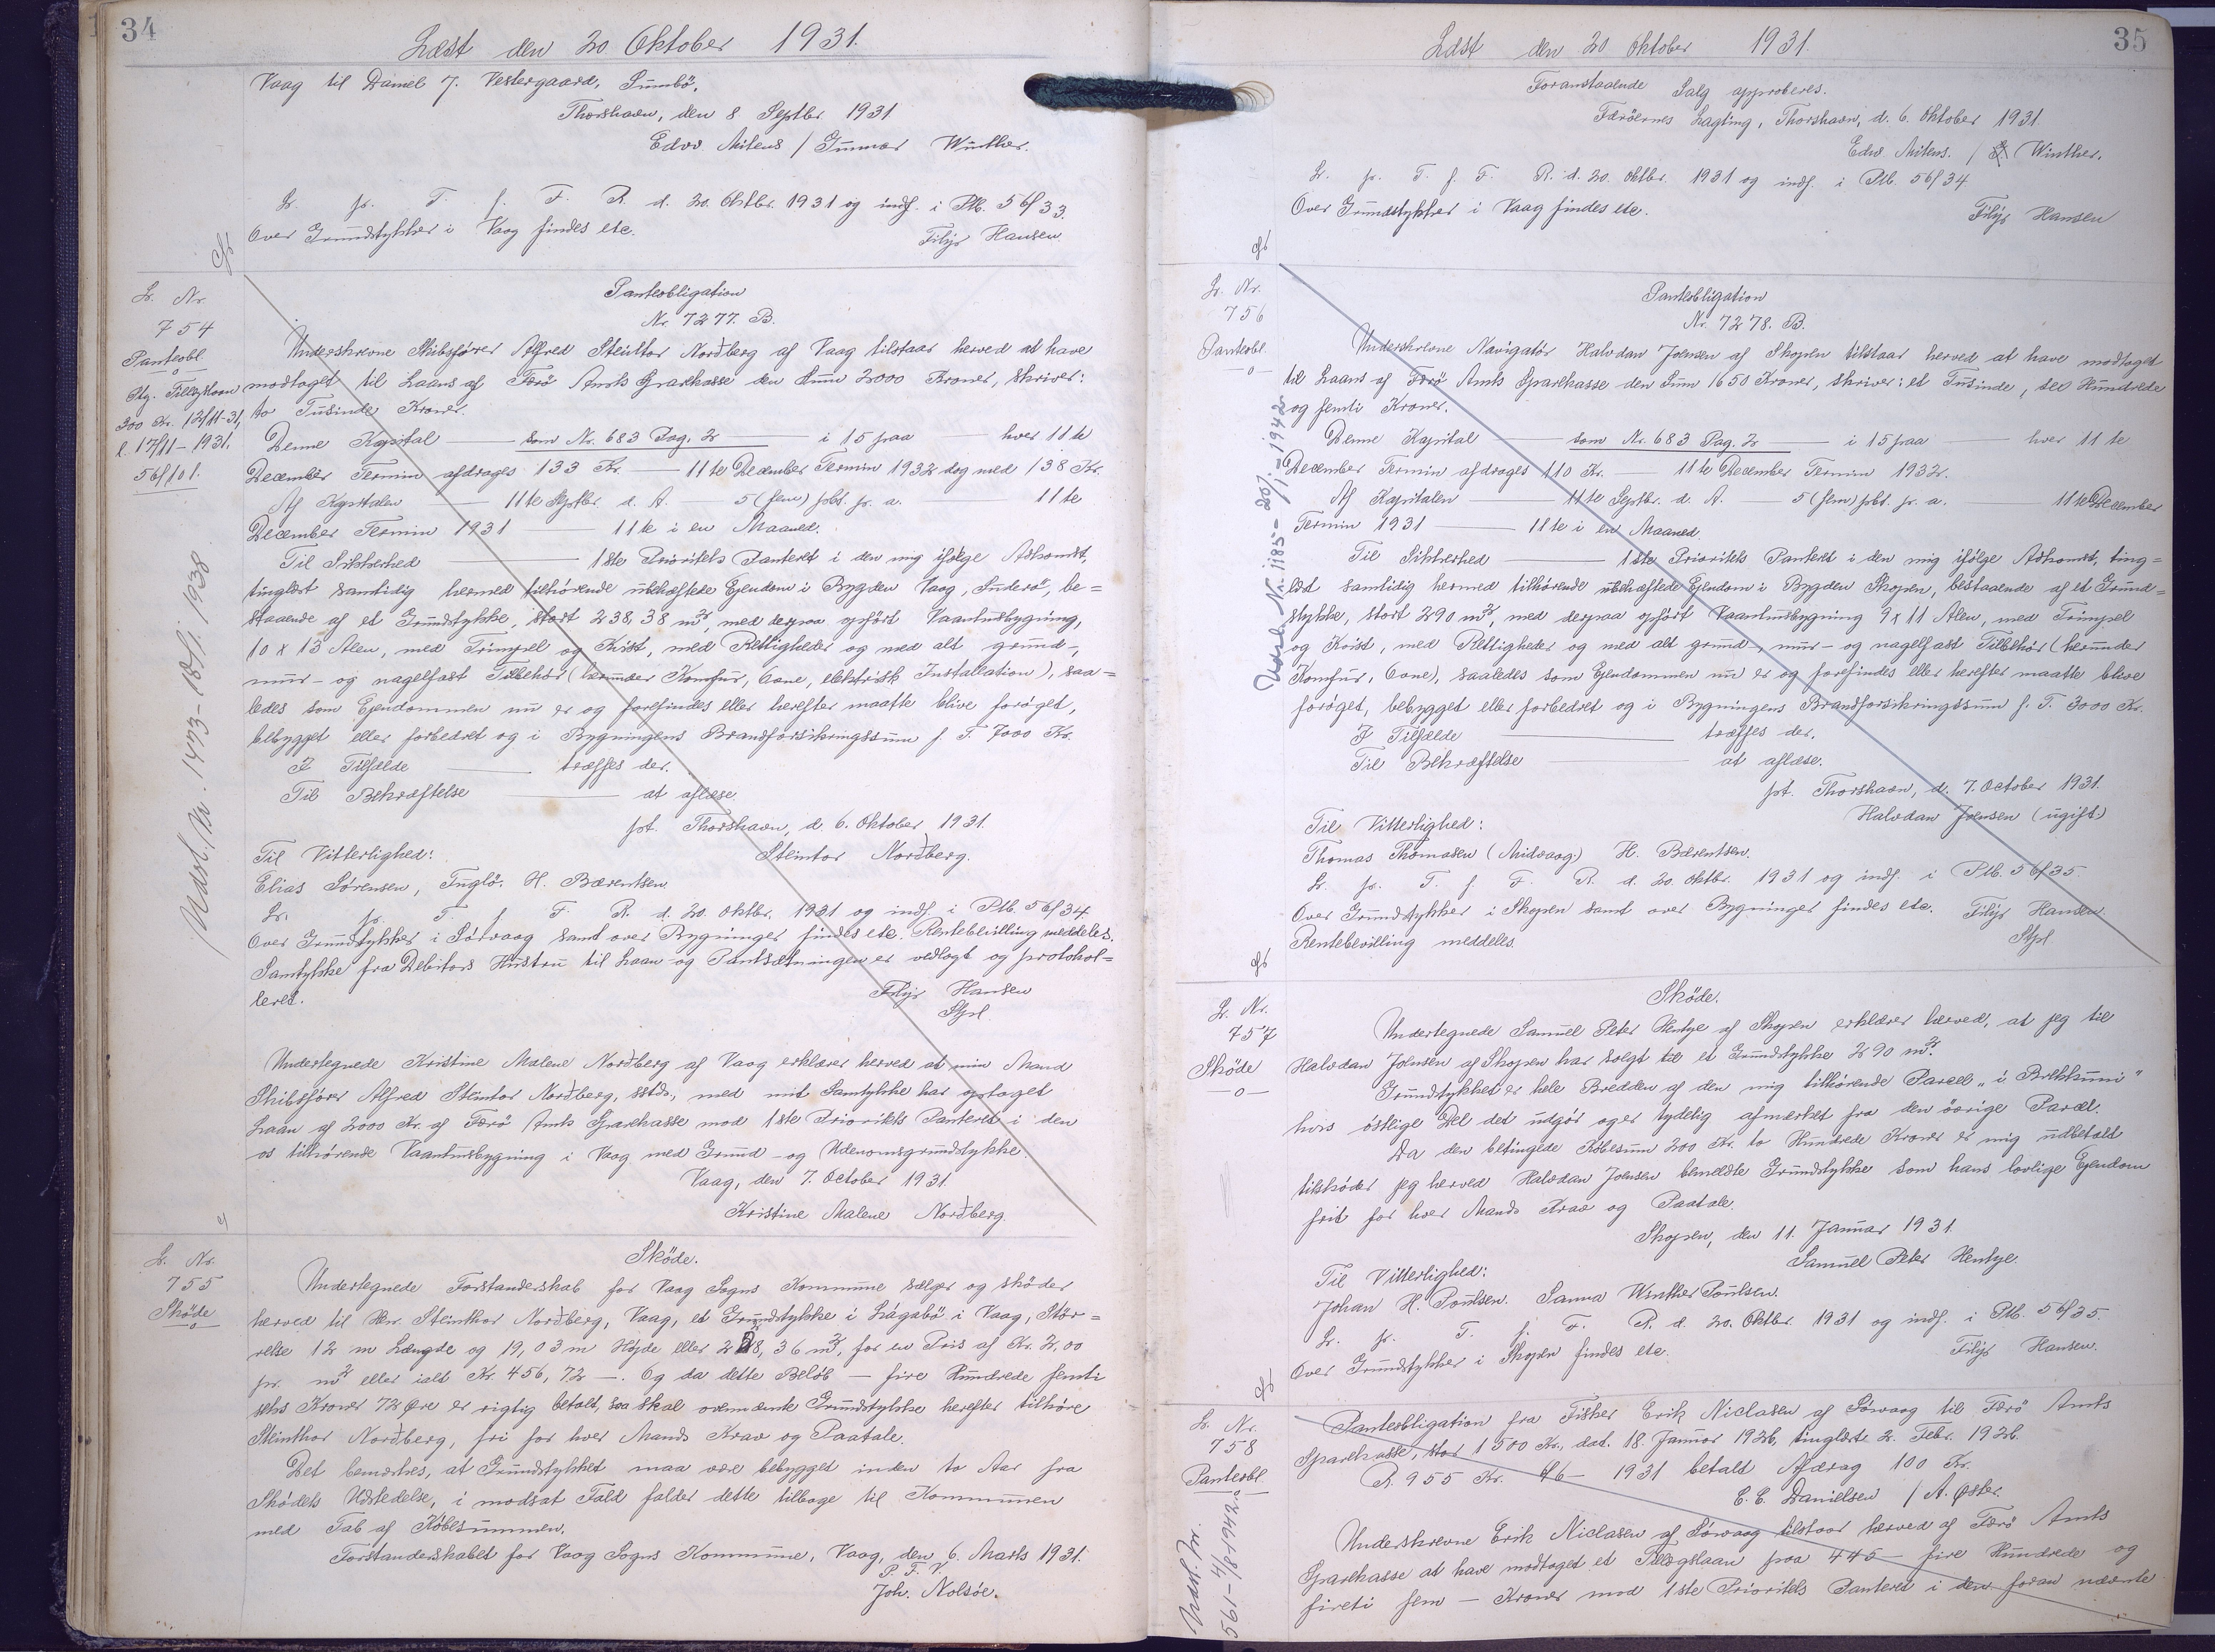 34
Læst den 20 Oktober 1931.
Vaag til Daniel J. Vestergaard, Sumbö.
Thorshavn, den 8 Septbr 1931
Edvv. Mitens / Gunnar Winther.
Lr. pr. T. f. F. R. d. 20. Oktbr. 1931 og indf. i Ptb. 56/33.
Over Grundstykker i Vaag findes etc.
Filip Hansen
Lr. Nr.
754
Panteobl.
Ptg. Tillægslaan
300 Kr. 12/11-31,
l. 17/11-1931.
56/101.
Udsl. Nr. 1473-18/1. 1938
Panteobligation
Nr. 7277. B.
Underskrevne Skibsfører Alfred Steintor Norðberg af Vaag tilstaar herved at have
modtaget til Laans af Færö Amts Sparekasse den Sum 2000 Kroner, skriver:
to Tusinde Kroner.
Denne Kapital — som Nr. 683 Pag. 2 — i 15 paa — hver 11te
December Termin afdrages 133 Kr. — 11te December Termin 1932 dog med 138 Kr.
Af Kapitalen — 11te Septbr. d. A. — 5 (fem) pCt. pr. a. 11te
December Termin 1931 — 11te i en Maaned.
Til Sikkerhed — 1ste Prioritets Panteret i den mig ifølge Adkomst,
tinglæst samtidig hermed tilhörende ubehæftede Ejendom i Bygden Vaag, Suderö, be=
staaende af et Grundstykke, stort 238,38 m², med derpaa opfört Vaaningsbygning,
10 x 13 Alen, med Trimpel og Kvist, med Rettigheder og med alt grund-,
mur- og nagelfast Tilbehör (herunder Komfur, Ovne, elektrisk Installation), saa=
ledes som Ejendommen nu er og forefindes eller herefter maatte blive foröget,
bebygget eller forbedret og i Bygningens Brandforsikringssum f. T. 7000 Kr.
I Tilfælde — træffes der.
Til Bekræftelse — at aflæse.
pt. Thorshavn, d. 6. Oktober 1931.
Til Vitterlighed:
Steintor Norðberg.
Elias Sørensen, Fuglö. H. Bærentsen.
Lr. pr. T. f. F. R. d. 20. Oktbr. 1931 og indf. i Ptb. 56/34.
Over Grundstykker i Sörvaag samt over Bygninger findes etc. Rentebevilling meddeles.
Samtykke fra Debitors Hustru til Laan- og Pantsætningen er vedlagt og protokol=
leret.
Filip Hansen
Stpl
Undertegnede Kristine Malene Norðberg af Vaag erklærer herved at min Mand
Skibsfører Alfred Steintor Norðberg, sstds., med mit Samtykke har optaget
Laan af 2000 Kr. af Færö Amts Sparekasse mod 1ste Prioritets Panteret i den
os tilhörende Vaaningsbygning i Vaag med Grund- og Udenomsgrundstykke.
Vaag, den 7. October 1931.
Kristine Malene Norðberg
Lr. Nr.
755
Sköde
Sköde.
Undertegnede Forstanderskab for Vaag Sogns Kommune sælger og sköder
herved til Hrr. Steinthor Norðberg, Vaag, et Grundstykke i Lágabö i Vaag, Stör=
relse 12 m Længde og 19,03 m Højde eller 228,36 m², for en Pris af Kr. 2,00
pr. m² eller ialt Kr. 456,72 —. Og da dette Belöb — fire Hundrede femti
seks Kroner 72 Øre er rigtig betalt, saa skal ovennævnte Grundstykke herefter tilhöre
Steinthor Norðberg, fri for hver Mands Krav og Paatale.
Det bemærkes, at Grundstykket maa være bebygget inden to Aar fra
Skødets Udstedelse, i modsat Fald falder dette tilbage til Kommunen
med Tab af Köbesummen.
Forstanderskabet for Vaag Sogns Kommune, Vaag, den 6. Marts 1931.
P. F. V.
Joh. Nolsöe.
35
Læst den 20 Oktober 1931.
Foranstaaende Salg approberes.
Færöernes Lagting, Thorshavn, d. 6. Oktober 1931.
Edv. Mitens. / G. Winther.
Lr. pr. T. f. F. R. d. 20. Oktbr. 1931 og indf. i Ptb. 56/34
Over Grundstykker i Vaag findes etc.
Filip Hansen
Lr. Nr.
756
Panteobl.
Udsl. Nr. 1185-20/1-1942
Panteobligation
Nr. 7278. B.
Underskrevne Navigatör Halvdan Joensen af Skopen tilstaar herved at have modtaget
til Laans af Færö Amts Sparekasse den Sum 1650 Kroner, skriver: et Tusinde, seks Hundrede
og femti Kroner.
Denne Kapital — som Nr. 683 Pag. 2 — i 15 paa — hver 11te
December Termin afdrages 110 Kr. 11te December Termin 1932.
Af Kapitalen — 11te Septbr. d. A. — 5 (fem) pCt. pr. a. — 11te December
Termin 1931 — 11te i en Maaned.
Til Sikkerhed — 1ste Prioritets Panteret i den mig ifölge Adkomst, ting=
læst samtidig hermed tilhörende ubehæftede Ejendom i Bygden Skopen, bestaaende af et Grund=
stykke, stort 290 m², med derpaa opfört Vaaningsbygning 9 x 11 Alen, med Trimpel
og Kvist, med Rettigheder og med alt grund-, mur- og nagelfast Tilbehör (herunder
Komfur, Ovne), saaledes som Ejendommen nu er og forefindes eller herefter maatte blive
foröget, bebygget eller forbedret og i Bygningens Brandforsikringssum f. T. 3000 Kr.
I Tilfælde — træffes der.
Til Bekræftelse — at aflæse.
pt. Thorshavn, d. 7. October 1931.
Halvdan Joensen (ugift)
Til Vitterlighed:
Thomas Thomasen (Midvaag) H. Bærentsen.
Lr. pr. T. f. F. R. d. 20. Oktbr. 1931 og indf. i Ptb. 56/35.
Over Grundstykker i Skopen samt over Bygninger findes etc. Filip Hansen.
Rentebevilling meddeles.
Stpl
Lr. Nr.
757
Sköde
Sköde.
Undertegnede Samuel Peter Hentze af Skopen erklærer herved, at jeg til
Halvdan Joensen af Skopen har solgt til et Grundstykke 290 m².
Grundstykket er hele Bredden af den mig tilhörende Parcel „i Brekkuni"
hvis östlige Del det udgör og er tydelig afmærket fra den övrige Parcel.
Da den betingede Köbesum 200 Kr. to Hundrede Kroner er mig udbetalt
tilsköder jeg herved Halvdan Joensen bemeldte Grundstykke som hans lovlige Ejendom
frit for hver Mands Krav og Paatale.
Skopen, den 11. Januar 1931.
Samuel Peter Hentze.
Til Vitterlighed:
Johan H. Poulsen. Sanna Winther Poulsen.
Lr. pr. T. f. F. R. d. 20. Oktbr. 1931 og indf. i Ptb. 56/35.
Over Grundstykker i Skopen findes etc.
Filip Hansen.
Lr. Nr.
758
Panteobl.
Udsl. Nr.
561-4/8-1942
Panteobligation fra Fisker Erik Niclasen af Sörvaag til Færö Amts
Sparekasse, stor 1500 Kr., dat. 18. Januar 1926, tinglæst 2. Febr. 1926.
R. 955 Kr. 1931 betalt Afdrag 100 Kr.
E. E. Danielsen / A. Øster.
Underskrevne Erik Niclasen af Sörvaag tilstaar herved af Færö Amts
Sparekasse at have modtaget et Tillægslaan paa 445 — fire Hundrede og
fireti fem — Kroner mod 1ste Prioritets Panteret i den foran nævnte